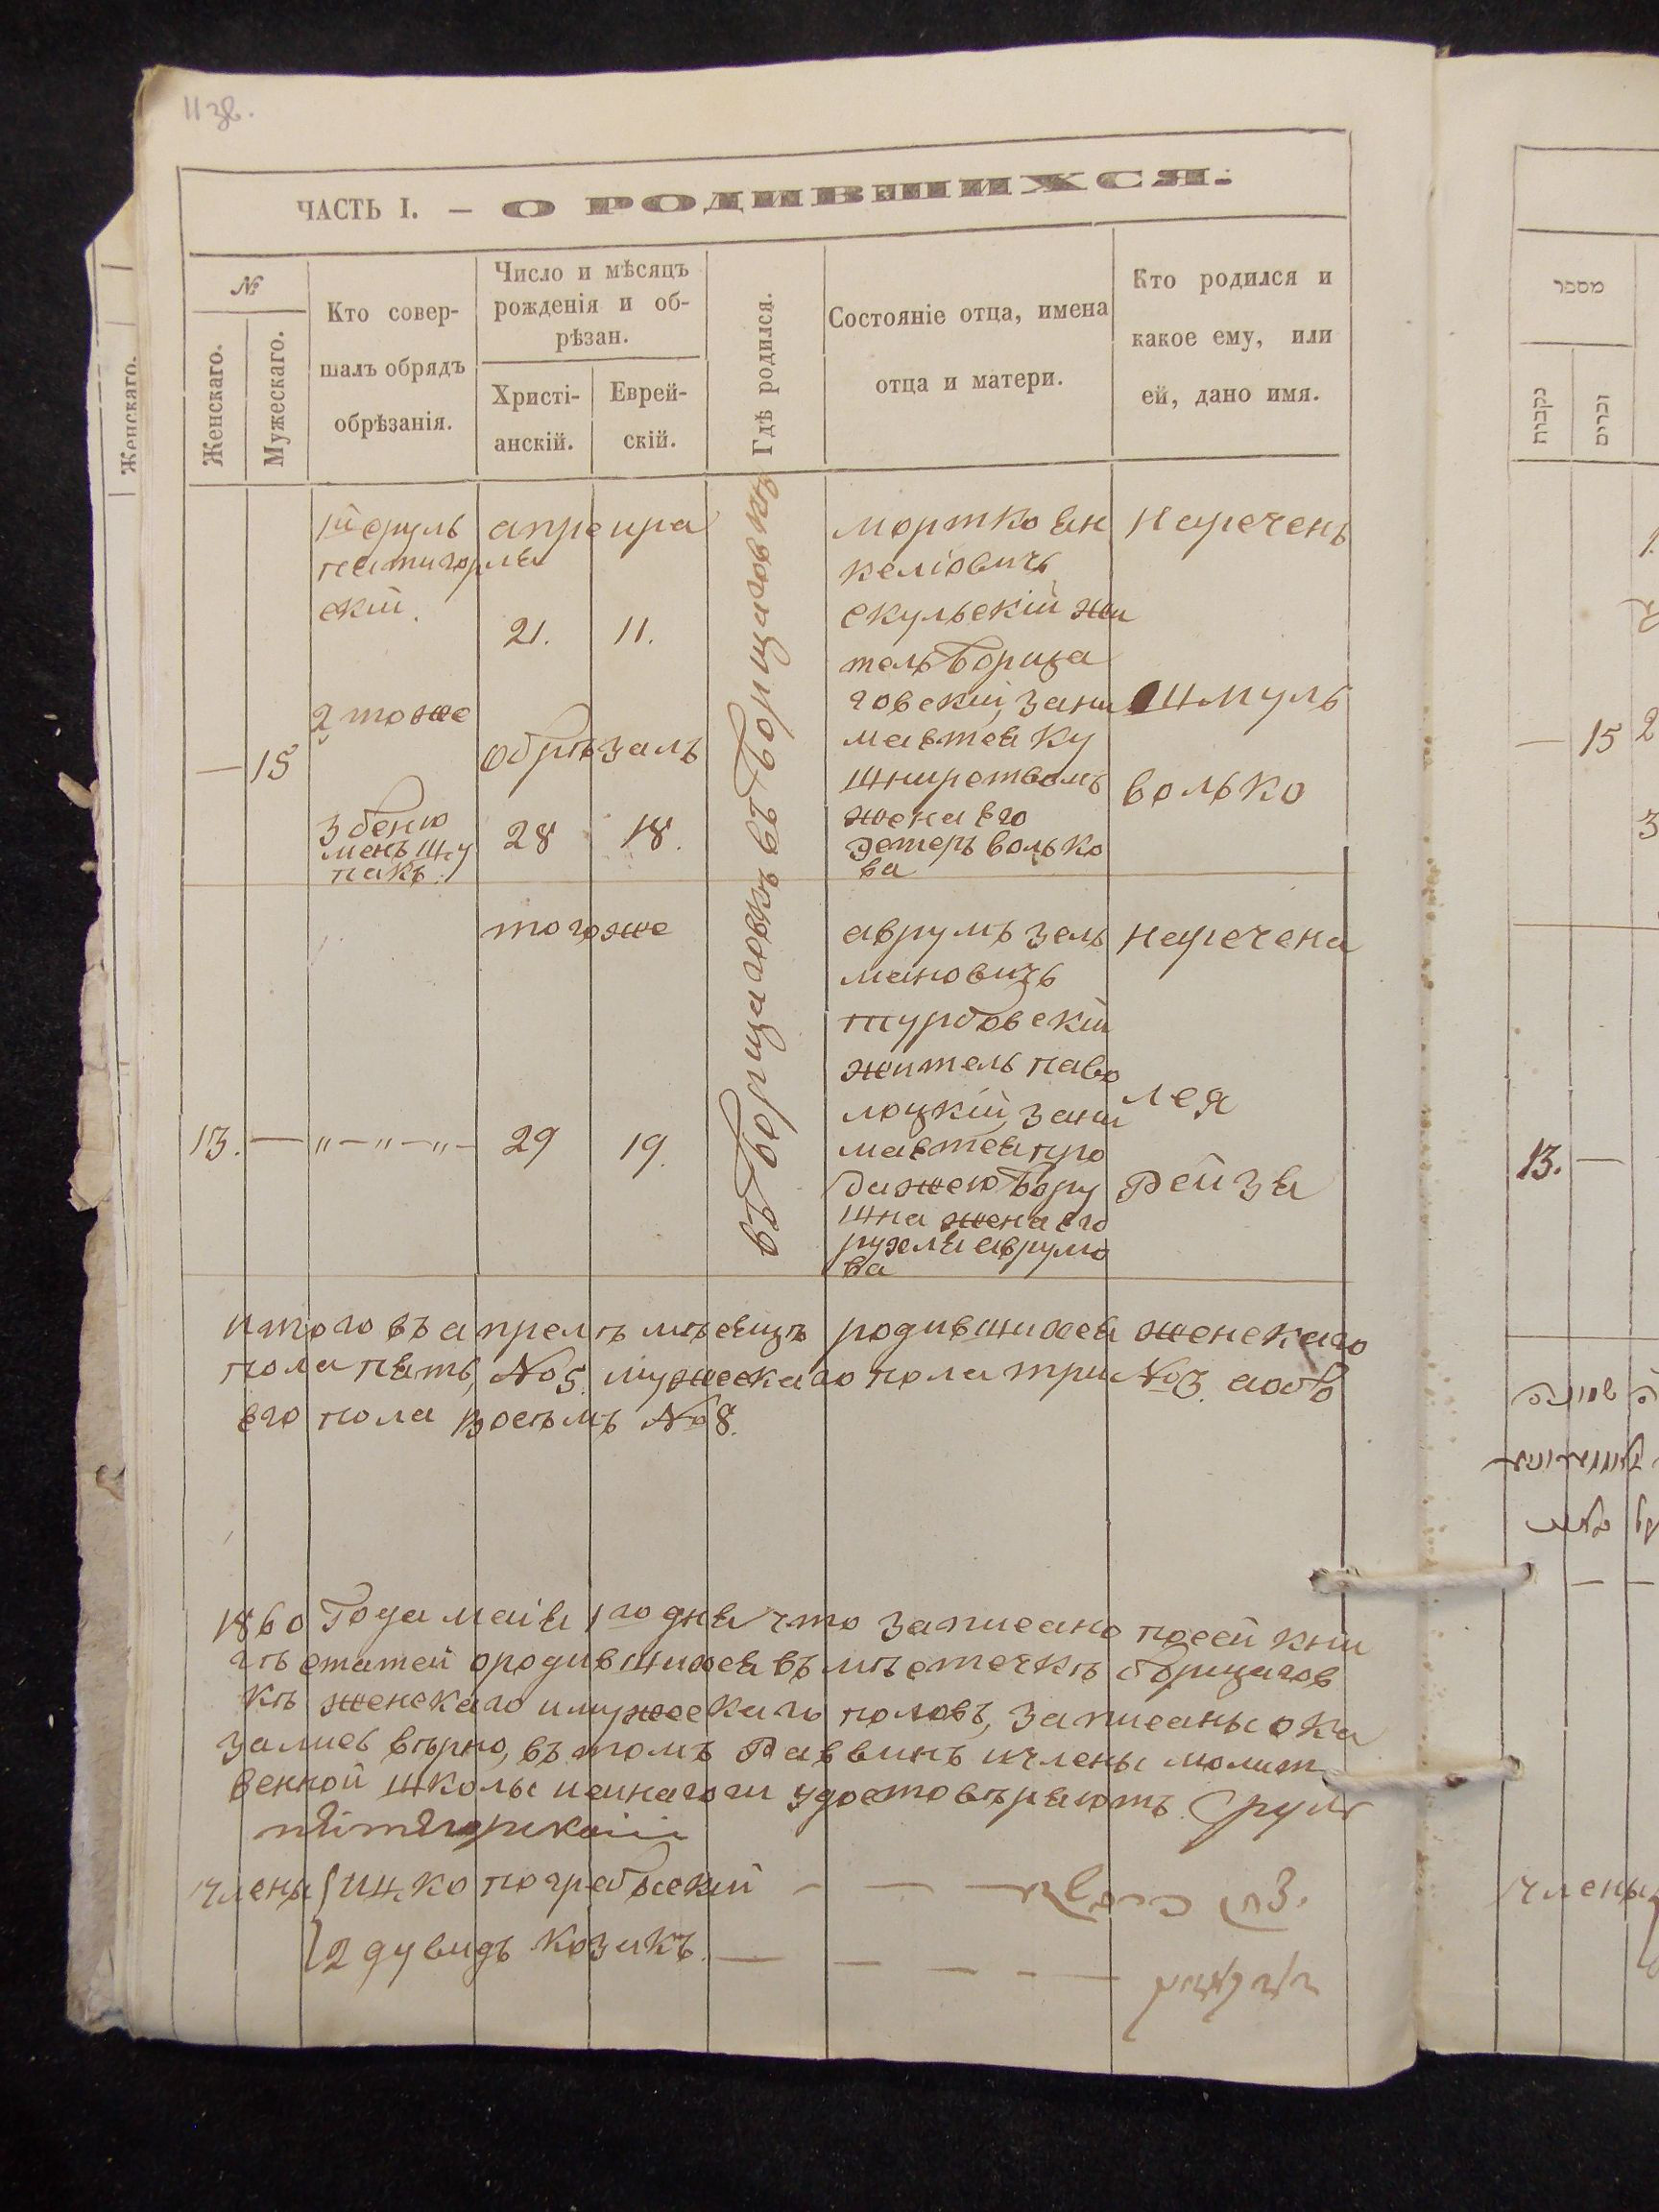 11 зв.
ЧАСТЬ I. — О РОДИВШИХСЯ.
№
Женскаго.
Мужескаго.
Кто совер-
шалъ обрядъ
обрѣзанія.
Число и мѣсяцъ
рожденія и об-
рѣзан.
Христі-
анскій.
Еврей-
скій.
Гдѣ родился.
Состояніе отца, имена
отца и матери.
Кто родился и
какое ему, или
ей, дано имя.
— 15
1й сруль
пятигор
скій.
2 тоже
3 беню
менъ
апре ира
ля
21. 11.
обрѣзалъ
28 18.
въ Борщаговкѣ
мортко ян
келіовичъ
скульскій жи
тель борща
говскій, зани
мается ку
жена его
эстеръ волько
ва
нареченъ
шмуль
волько
13. — „—„—„—
тогоже
29 19.
въ Борщаговкѣ
аврумъ зель
мановичъ
турбовскій
житель паво
лоцкій, зани
мается про
дажею бору
шна жена его
рухля аврумо
ва
наречена
лея
рейзя
итого въ апрелѣ мѣсяцѣ родившихся женскаго
пола пять, №5. мужескаго пола три №3. а обо
его пола восемъ №8.
1860 года маія 1го дня что записано по сей кни
гѣ статей ородившихся въ мѣстечкѣ борщагов
кѣ женскаго имужескаго половъ, записаны ока
зались вѣрно, въ томъ раввинъ ичлены молит
венной школы исинагоги удостовѣряютъ Сруль
пятигорскій
члены Ицко погребыскій
2 дувидъ козакъ.
Женскаго.
מספר
נקבות
זכרים
— 15
13. —
члены